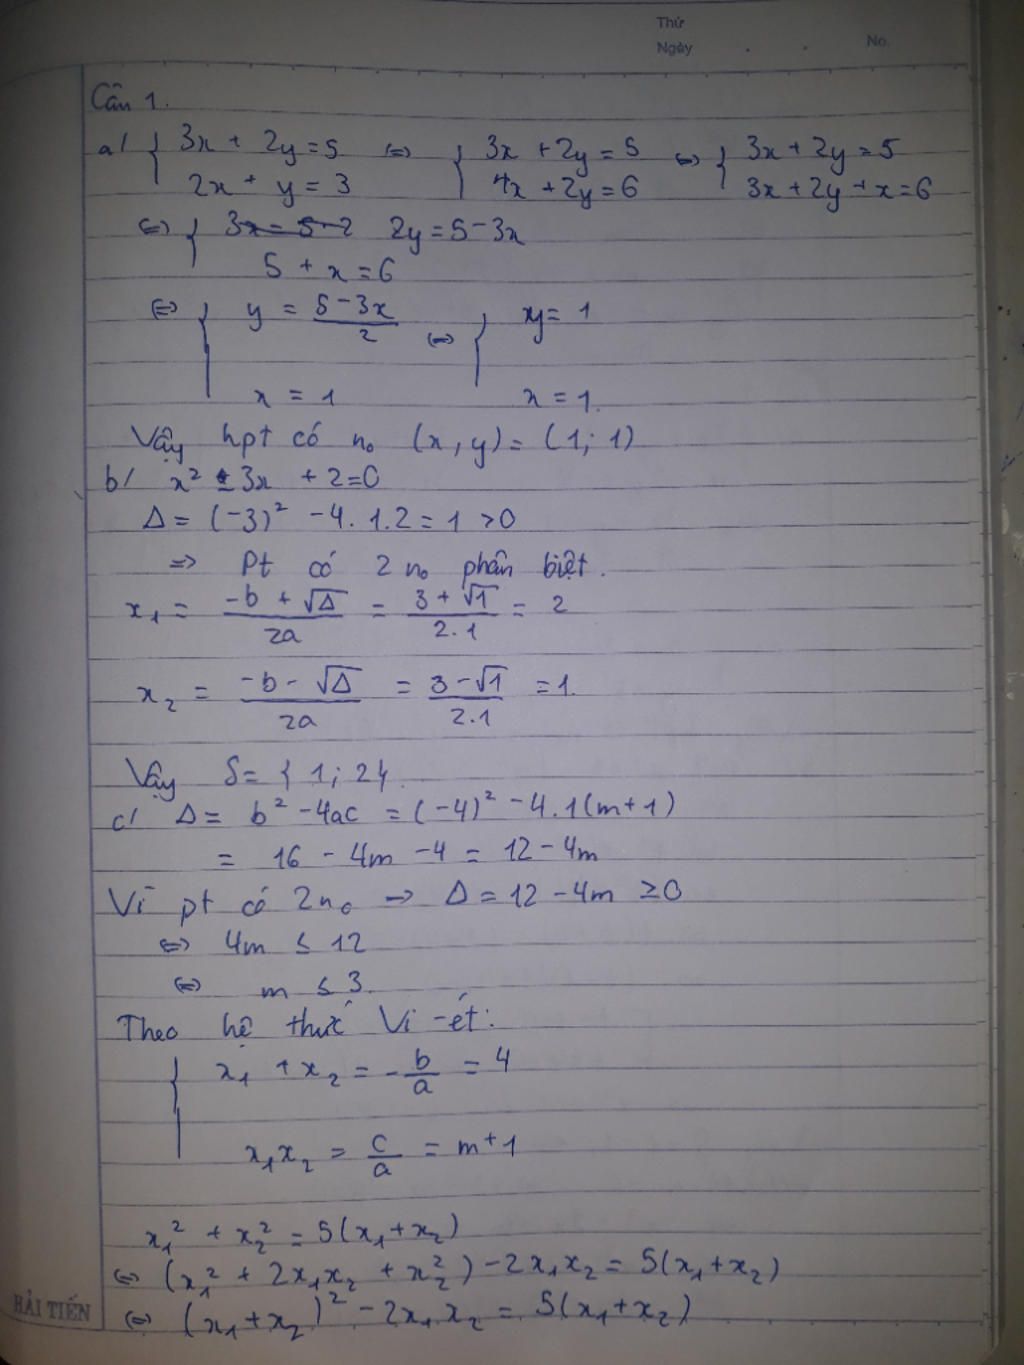 Thứ
Ngày . . No.
Câu 1.
a/ { 3x + 2y = 5 <=> { 3x + 2y = 5 <=> { 3x + 2y = 5
2x + y = 3 4x + 2y = 6 3x + 2y + x = 6
<=> { 3x = 5 - 2 2y = 5 - 3x
5 + x = 6
<=> { y = (5 - 3x)/2 <=> { y = 1
x = 1 x = 1.
Vậy hpt có n₀ (x, y) = (1; 1)
b/ x² - 3x + 2 = 0
Δ = (-3)² - 4. 1. 2 = 1 > 0
=> Pt có 2 n₀ phân biệt.
x₁ = (-b + √Δ)/2a = (3 + √1)/2.1 = 2
x₂ = (-b - √Δ)/2a = (3 - √1)/2.1 = 1.
Vậy S = { 1; 2}.
c/ Δ = b² - 4ac = (-4)² - 4. 1(m+1)
= 16 - 4m - 4 = 12 - 4m
Vì pt có 2 n₀ -> Δ = 12 - 4m ≥ 0
<=> 4m ≤ 12
<=> m ≤ 3.
Theo hệ thức Vi-ét:
{ x₁ + x₂ = -b/a = 4
x₁x₂ = c/a = m+1
x₁² + x₂² = 5(x₁+x₂)
<=> (x₁² + 2x₁x₂ + x₂²) - 2x₁x₂ = 5(x₁+x₂)
<=> (x₁+x₂)² - 2x₁x₂ = 5(x₁+x₂)
HẢI TIẾN